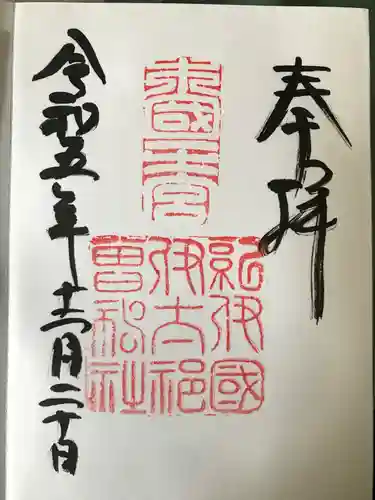 奉拝
紀伊國
伊太祁
曽神社
令和五年十二月二十日